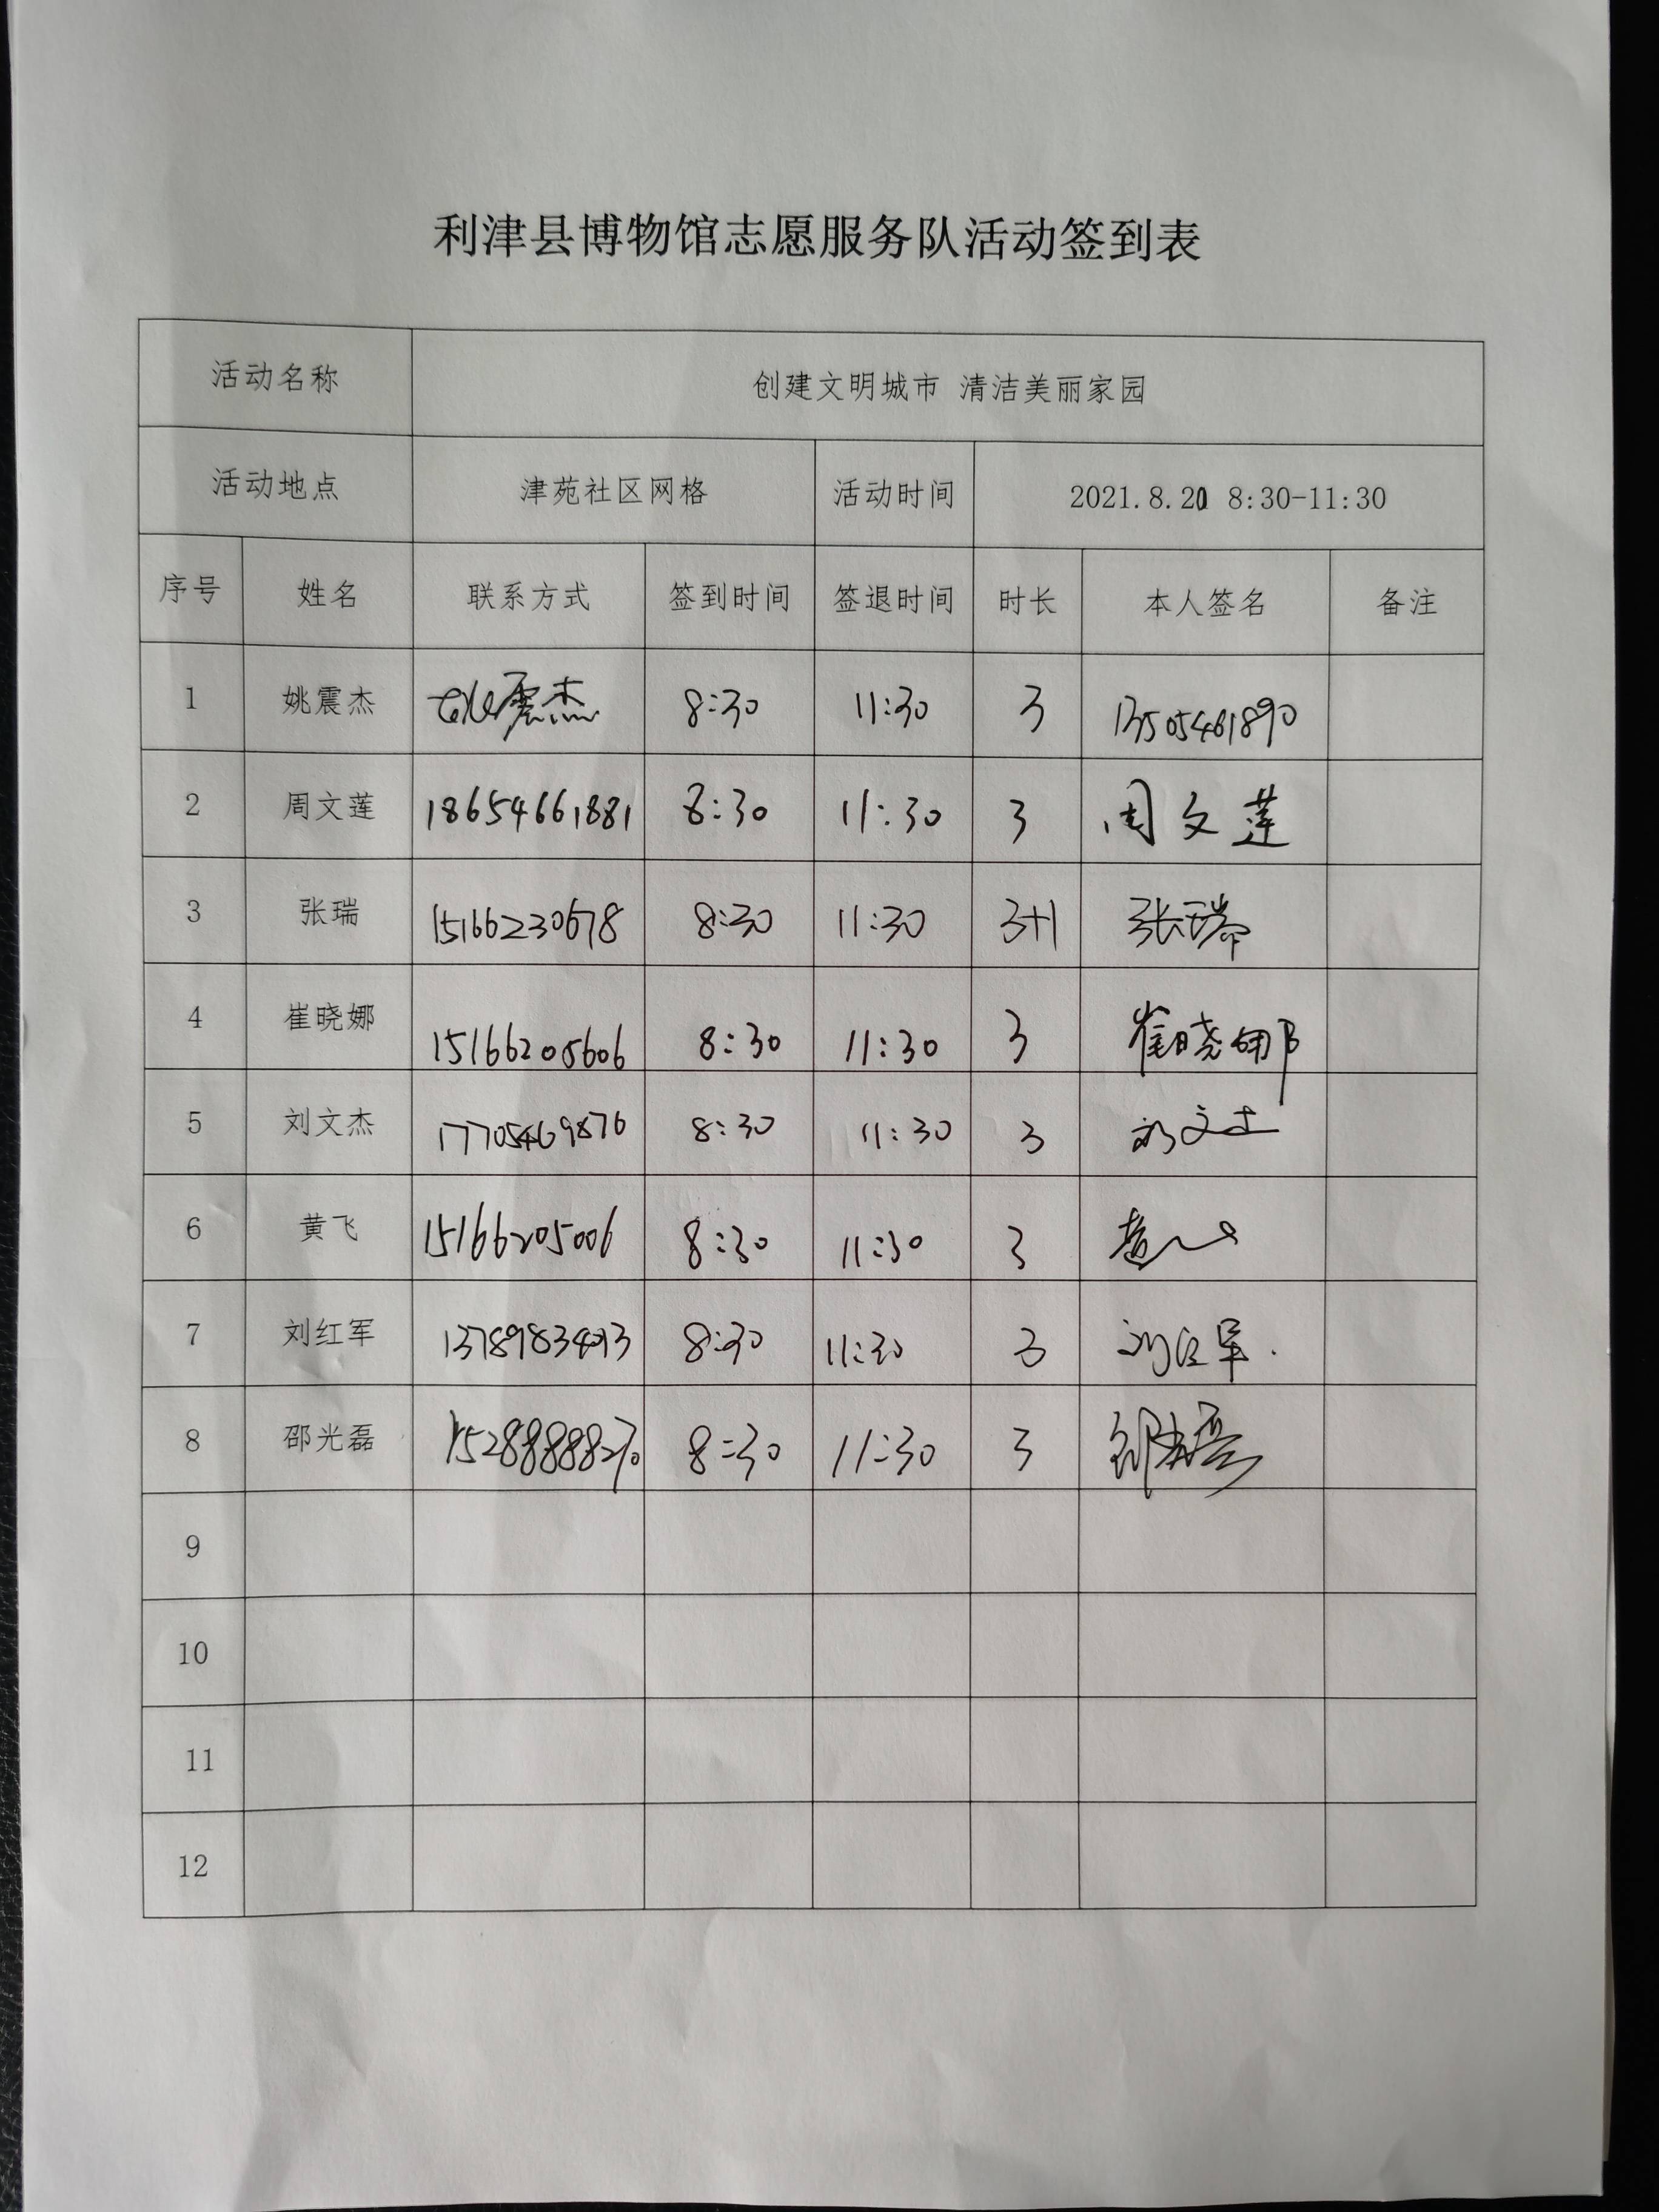 利津县博物馆志愿服务队活动签到表
活动名称 创建文明城市 清洁美丽家园
活动地点 津苑社区网格 活动时间 2021.8.21 8:30-11:30
序号 姓名 联系方式 签到时间 签退时间 时长 本人签名 备注
1 姚震杰 姚震杰 8:30 11:30 3 13505461890
2 周文莲 18654661881 8:30 11:30 3 周文莲
3 张瑞 15166230678 8:30 11:30 3+1 张瑞
4 崔晓娜 15166205606 8:30 11:30 3 崔晓娜
5 刘文杰 17705469876 8:30 11:30 3 刘文杰
6 黄飞 15166205006 8:30 11:30 3 黄飞
7 刘红军 8:30 11:30 3 刘红军
8 邵光磊 15288888270 8:30 11:30 3 邵光磊
9
10
11
12